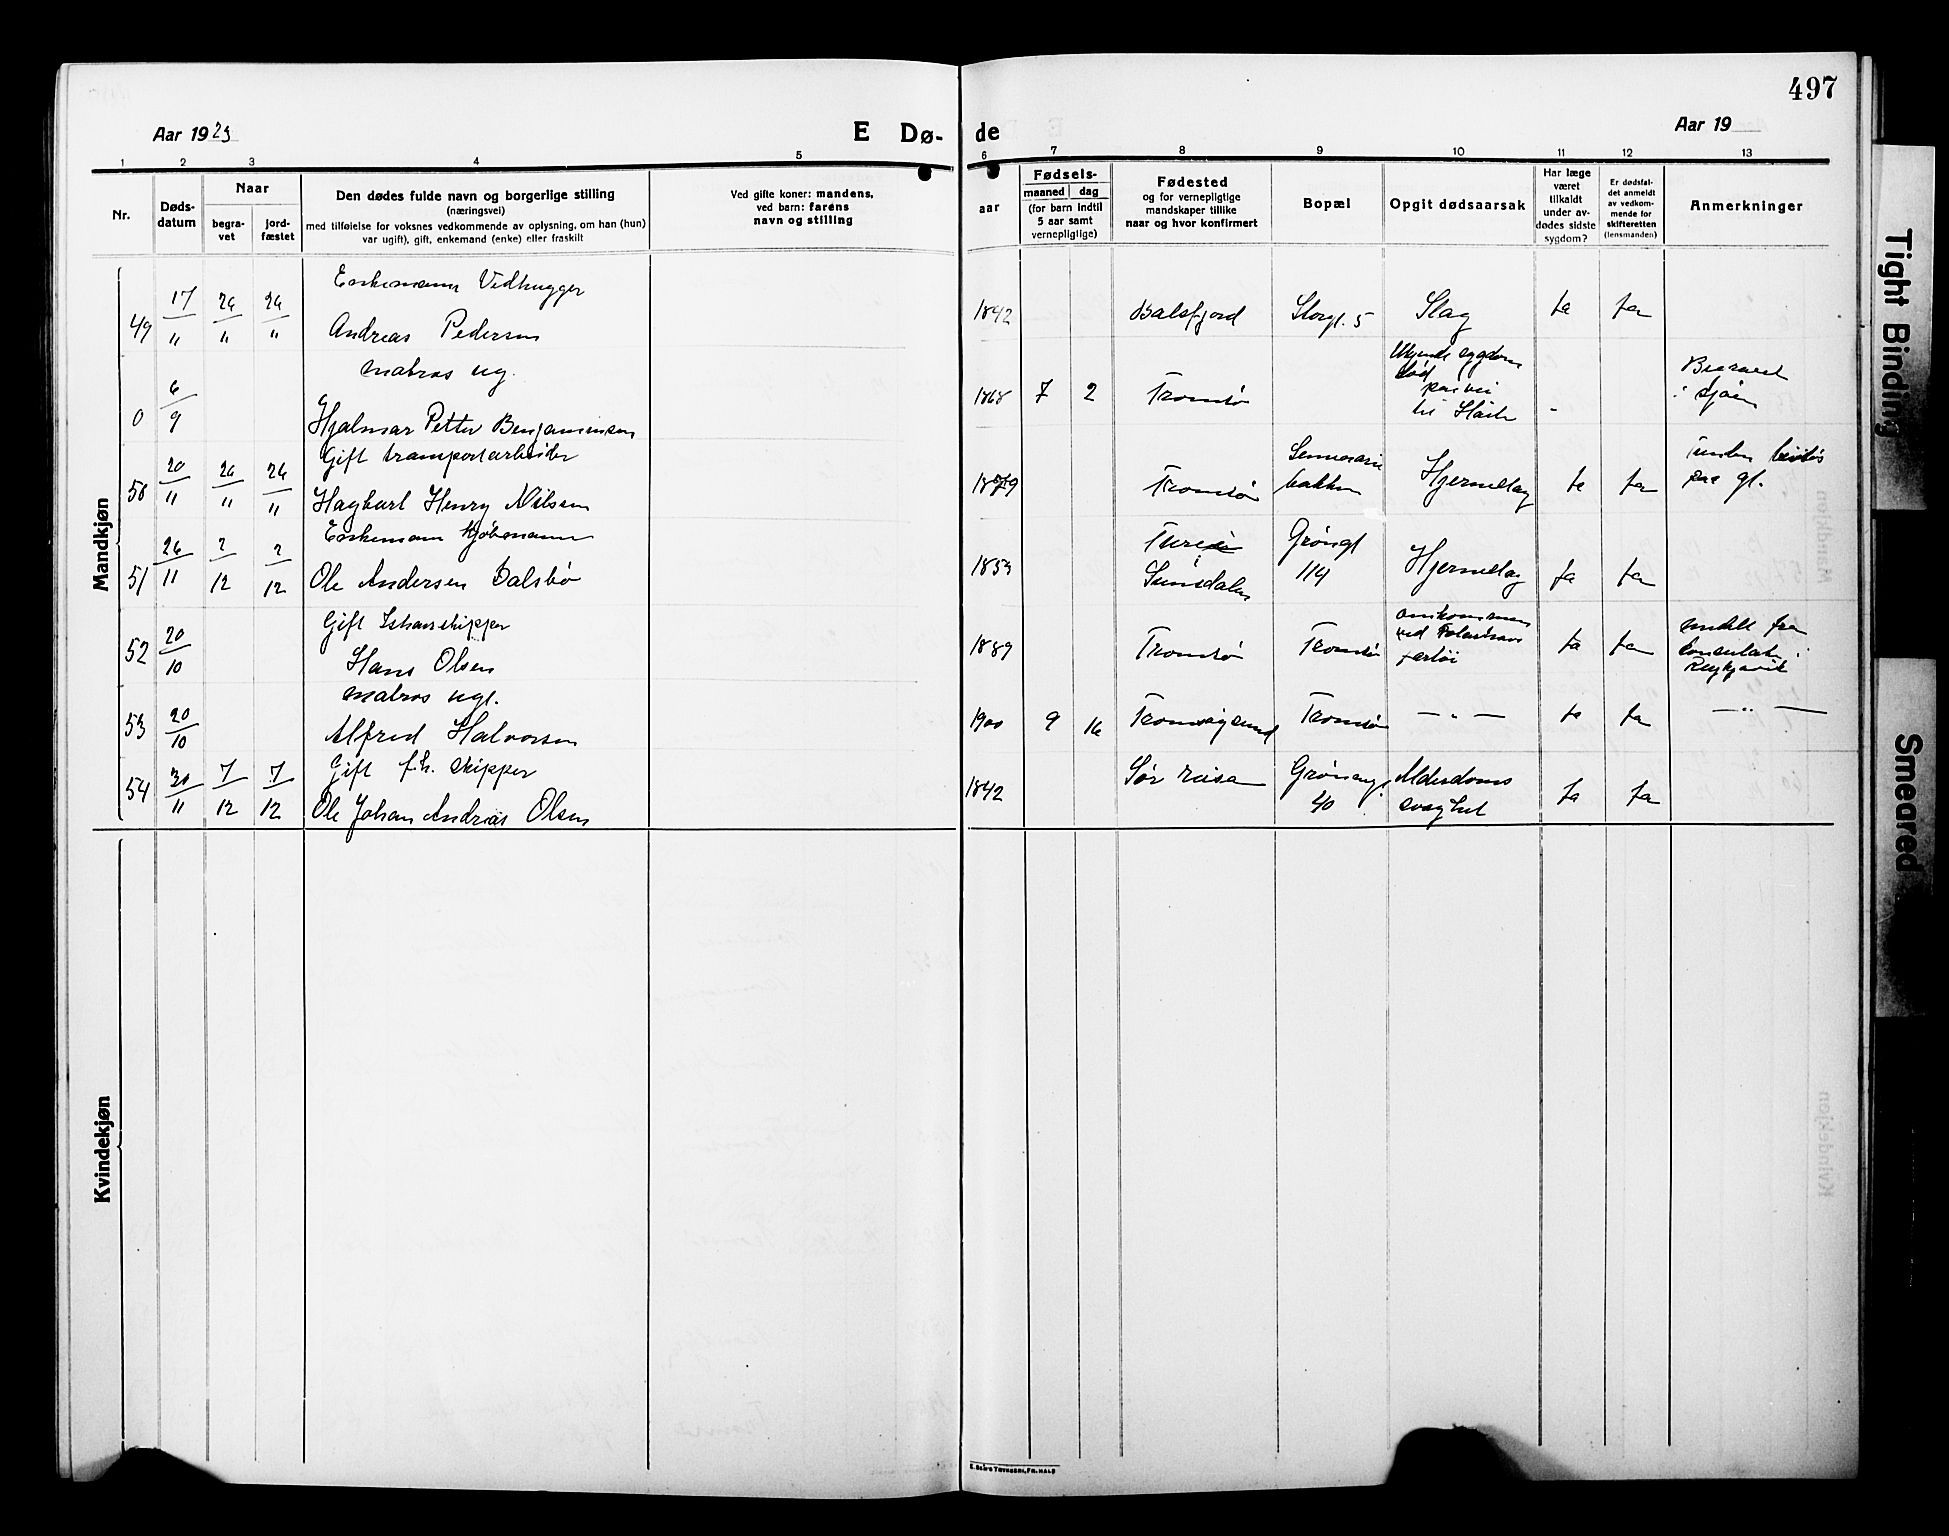 497
Aar 1923
E Dø-
de
Aar 19
1 2 3 4 5 6 7 8 9 10 11 12 13
Nr.
Døds-
datum
Naar
begra-
vet
jord-
fæstet
Den dødes fulde navn og borgerlige stilling
(næringsvei)
med tilføielse for voksnes vedkommende av oplysning, om han (hun)
var ugift), gift, enkemand (enke) eller fraskilt
Ved gifte koner: mandens,
ved barn: farens
navn og stilling
aar
Fødsels-
maaned dag
(for barn indtil
5 aar samt
vernepligtige)
Fødested
og for vernepligtige
mandskaper tillike
naar og hvor konfirmert
Bopæl
Opgit dødsaarsak
Har læge
været
tilkaldt
under av-
dødes sidste
sygdom?
Er dødsfal-
det anmeldt
av vedkom-
mende for
skifteretten
(lensmanden)
Anmerkninger
Mandkjøn
49 17/11 24/11 24/11
Enkemann Vedhugger
Andreas Pedersen
1842 Balsfjord Storgt. 5 Slag ja ja
0 6/9
matros ug.
Hjalmar Petter Benjaminsen
1868 7 2 Tromsø
Ukjendt sygdom
død
paa vei
til -
Begravet
i sjøen
50 20/11 26/11 26/11
Gift transportarbeider
Hagbart Henry Nilsen
1879 Tromsø
bakken
Hjerneslag ja ja
paa gl.
51 26/11 2/12 2/12
Enkemann Kjøbmann
Ole Andersen Dalsbø
1853
Sunsdalen
Grøngt
114
Hjerneslag ja ja
52 20/10
Gift Ishavsskipper
Hans Olsen
1889 Tromsø Tromsø
omkommen
ved
fartøi
ja ja
meldt fra
konsulatet i
Reykjavik
53 20/10
matros ugt.
Alfred Halvorsen
1900 9 16 Tromsøysund Tromsø — " — ja ja — " —
54 30/11 7/12 7/12
Gift f.h. skipper
Ole Johan Andreas Olsen
1842 Sør reisa
Grønneg.
40
Alderdoms
svaghet
ja ja
Kvindekjøn
E. SEM'S TRYKKERI, FR.HALD
Tight Binding
Smeared